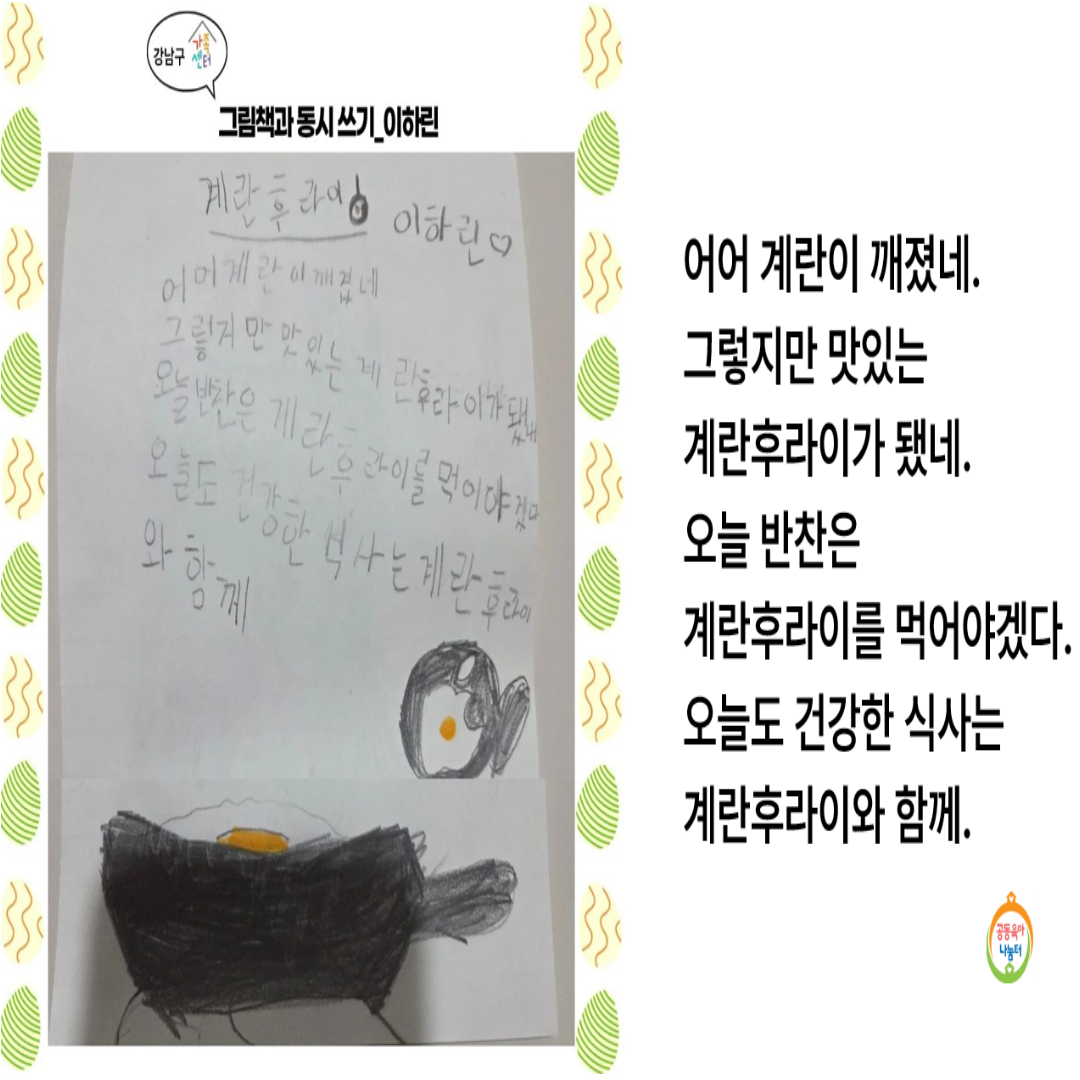 강남구 가족센터
그림책과 동시 쓰기_이하린
계란후라이
이하린♡
어머 계란이 깨졌네
그렇지만 맛있는 계란후라이가 됐네
오늘 반찬은 계란후라이를 먹어야겠다
오늘도 건강한 식사는 계란후라이
와 함께
어어 계란이 깨졌네.
그렇지만 맛있는
계란후라이가 됐네.
오늘 반찬은
계란후라이를 먹어야겠다.
오늘도 건강한 식사는
계란후라이와 함께.
공동육아
나눔터